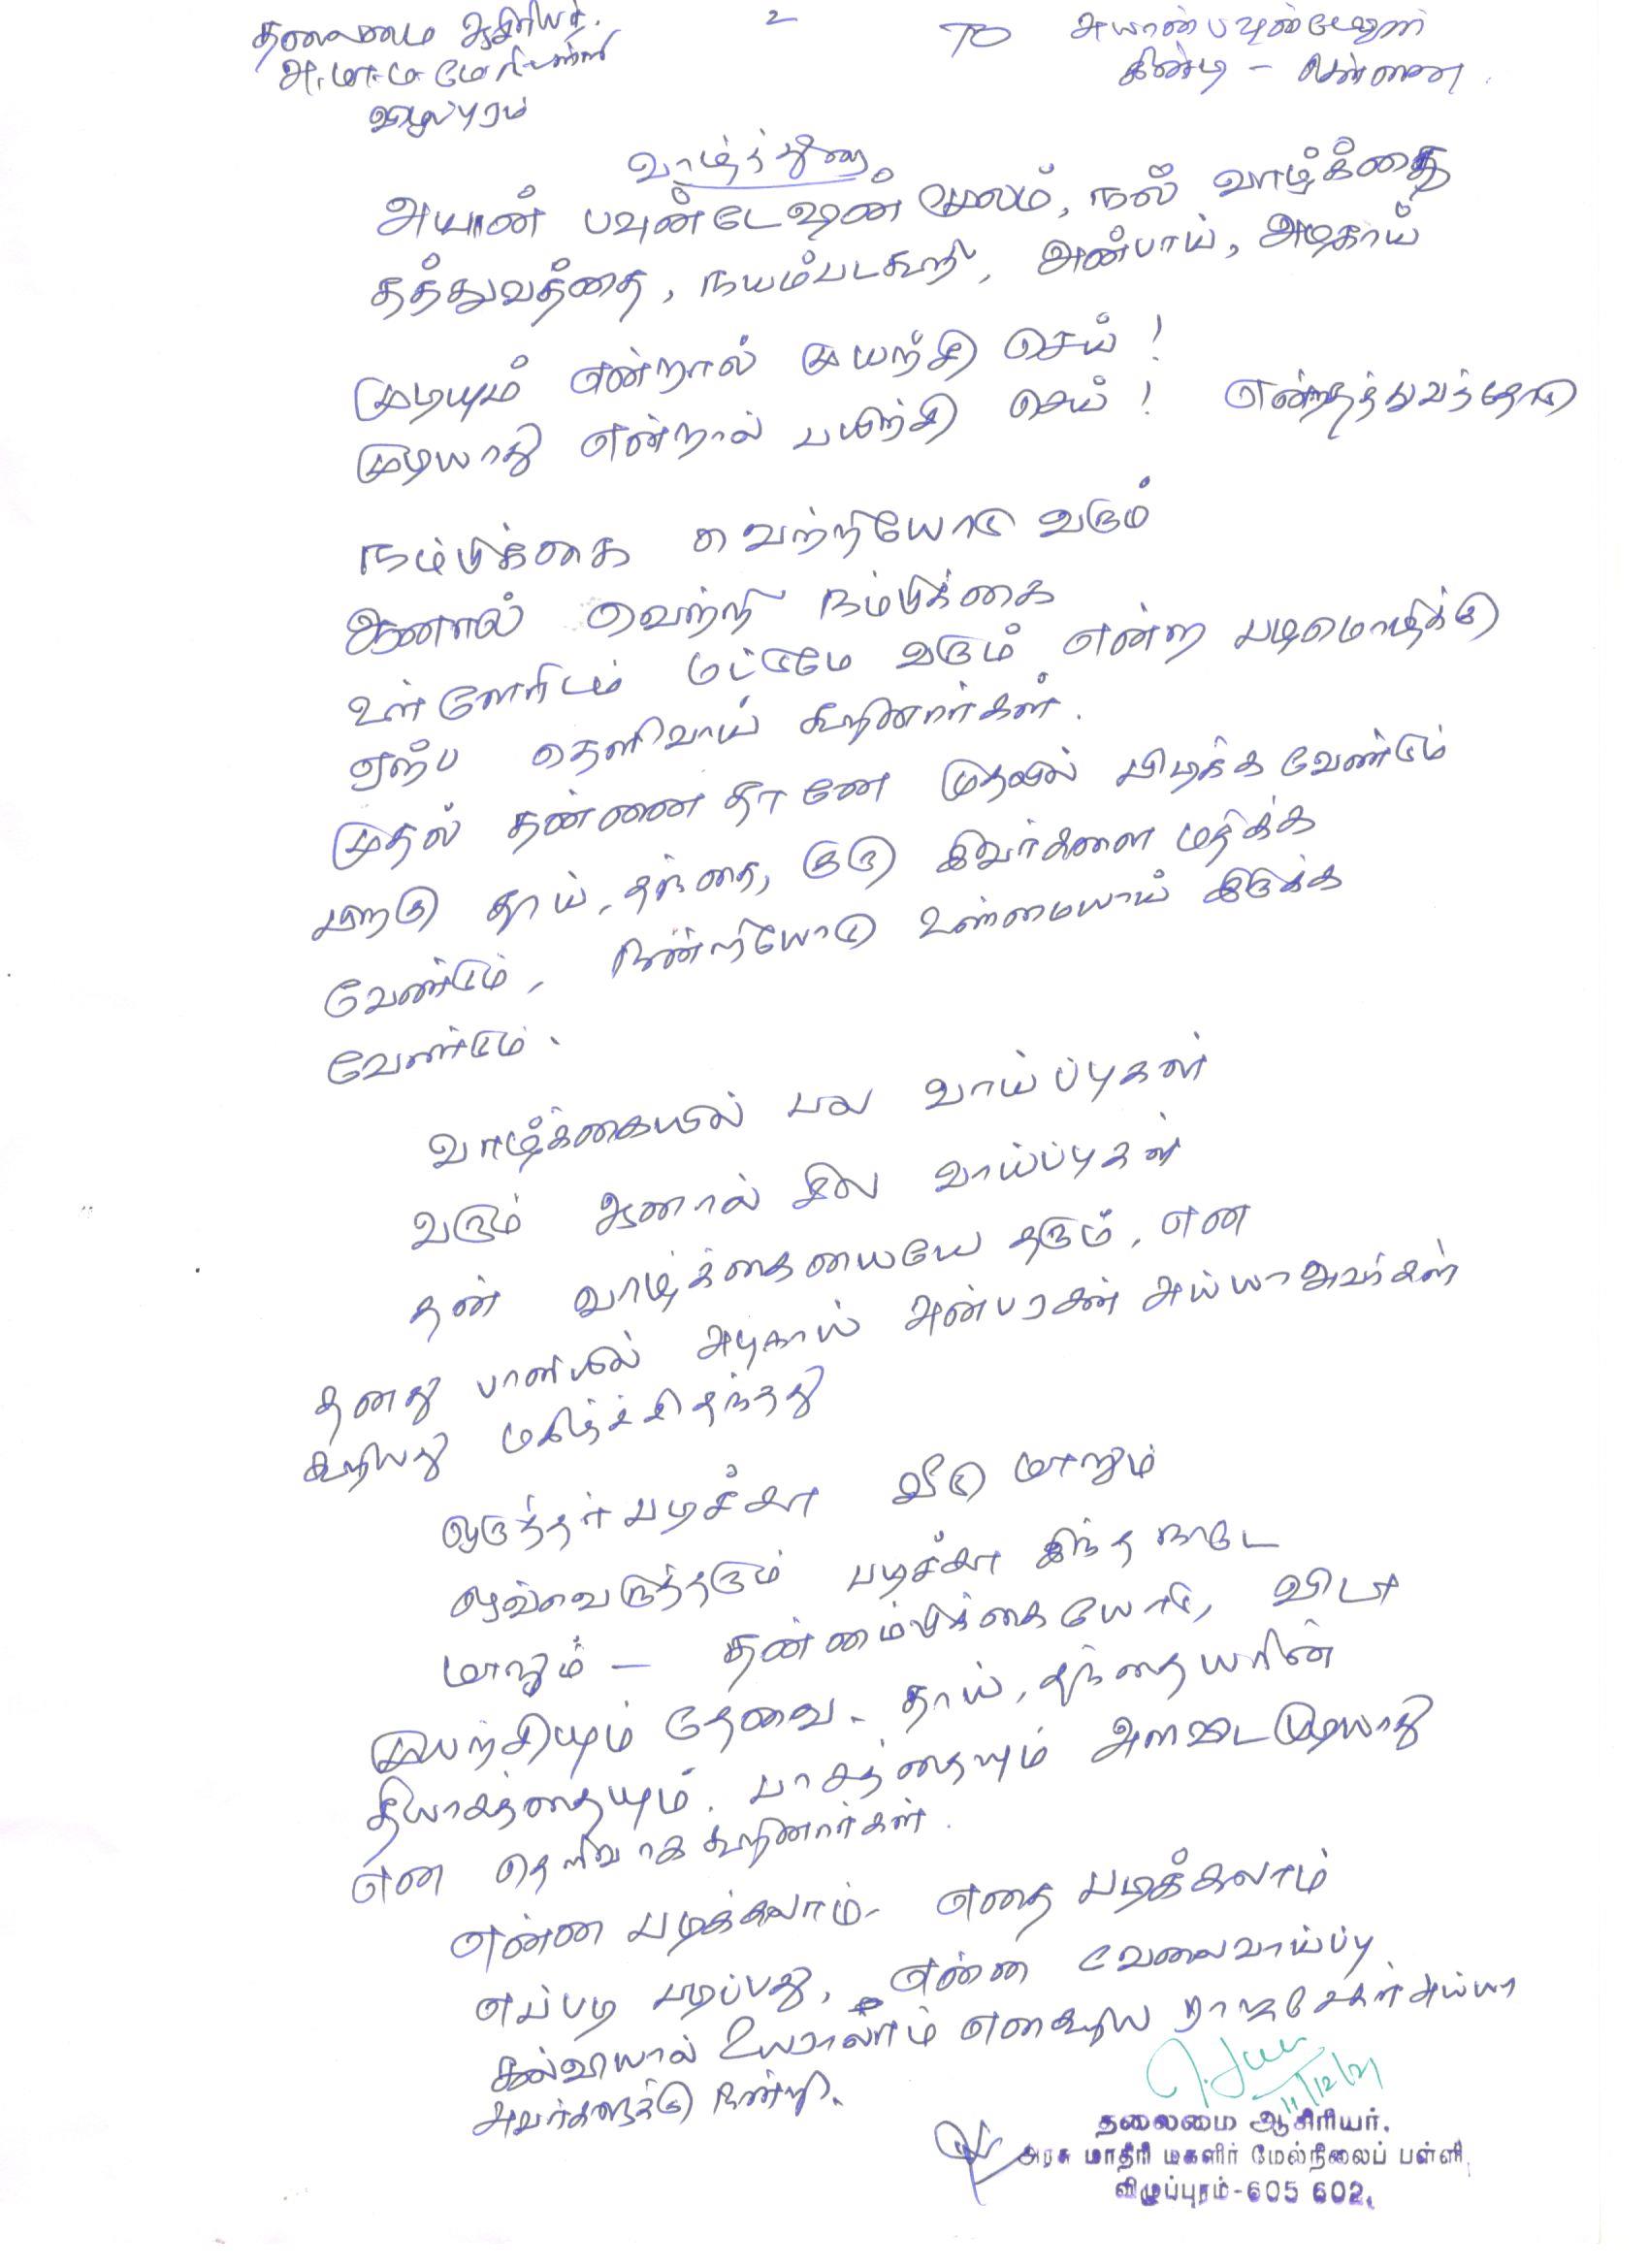 தலைமை ஆசிரியர்.
2
TO
அயான் பவுண்டேஷன்
அ.மா.ம மே.நி.பள்ளி
கிண்டி - சென்னை.
விழுப்புரம்
வாழ்த்துரை
அயான் பவுண்டேஷன் மூலம், நல் வாழ்க்கை
தத்துவத்தை, நயம்படகூறி, அன்பாய், அழகாய்
முடியும் என்றால் முயற்சி செய் !
முடியாது என்றால் பயிற்சி செய் ! என்றதத்துவத்தோடு
நம்பிக்கை வெற்றியோடு வரும்
ஆனால் வெற்றி நம்பிக்கை
உள்ளோரிடம் மட்டுமே வரும் என்ற பழமொழிக்கு
ஏற்ப தெளிவாய் கூறினார்கள்.
முதல் தன்னை தானே முதலில் பிடிக்க வேண்டும்
பிறகு தாய், தந்தை, குரு இவர்களை மதிக்க
வேண்டும், நன்றியோடு உண்மையாய் இருக்க
வேண்டும்.
வாழ்க்கையில் பல வாய்ப்புகள்
வரும் ஆனால் சில வாய்ப்புகள்
தன் வாழ்க்கையையே தரும், என
தனது பாணியில் அழகாய் அன்பரசன் அய்யா அவர்கள்
கூறியது மகிழ்ச்சி தந்தது
ஒருத்தர் படிச்சா வீடு மாறும்
ஒவ்வொருத்தரும் படிச்சா இந்த நாடே
மாறும் - தன்னம்பிக்கையோடு, விடா
முயற்சியும் தேவை. தாய், தந்தையரின்
தியாகத்தையும், பாசத்தையும் அளவிட முடியாது
என தெளிவாக கூறினார்கள்.
என்ன படிக்கலாம், எதை படிக்கலாம்
எப்படி படிப்பது, என்ன வேலைவாய்ப்பு
கல்வியால் உயரலாம் என கூறிய ராஜசேகர் அய்யா
அவர்களுக்கு நன்றி.
11/12/21
தலைமை ஆசிரியர்.
அரசு மாதிரி மகளிர் மேல்நிலைப் பள்ளி,
விழுப்புரம்-605 602.